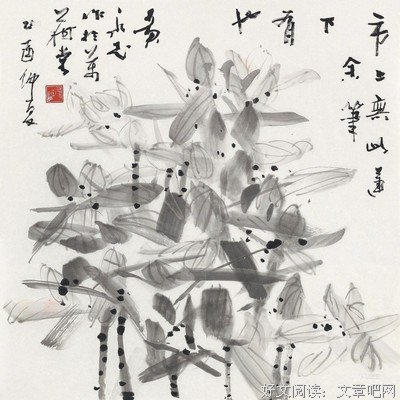 市上無此蓮
余筆
下
有
也
黄
永玉
作於萬
荷堂
乙酉仲夏
好文阅读：文章吧网